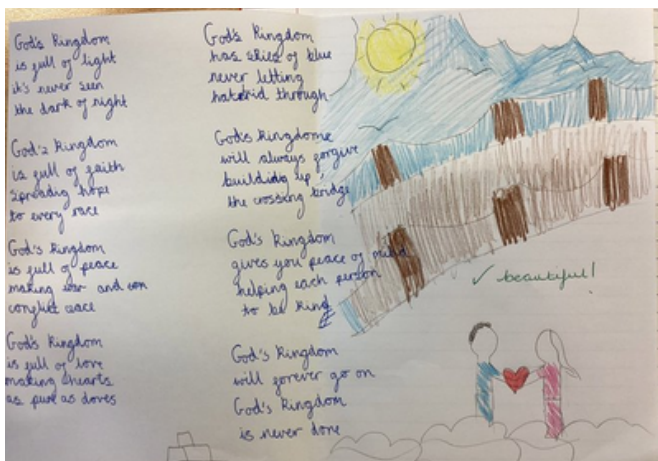 God's Kingdom
is full of light
it's never seen
the dark of night
God'z Kingdom
is full of faith
Spreading hope
to every race
God's Kingdom
is full of peace
making war and
conflict ceace
God's Kingdom
is full of love
making hearts
as pure as doves
God's Kingdom
has skies of blue
never letting
haterid through
God's Kingdome
will always forgive
building up
the crossing bridge
God's Kingdom
gives you peace of mind
helping each person
to be kind
God's Kingdom
will forever go on
God's Kingdom
is never done
✓ beautiful!